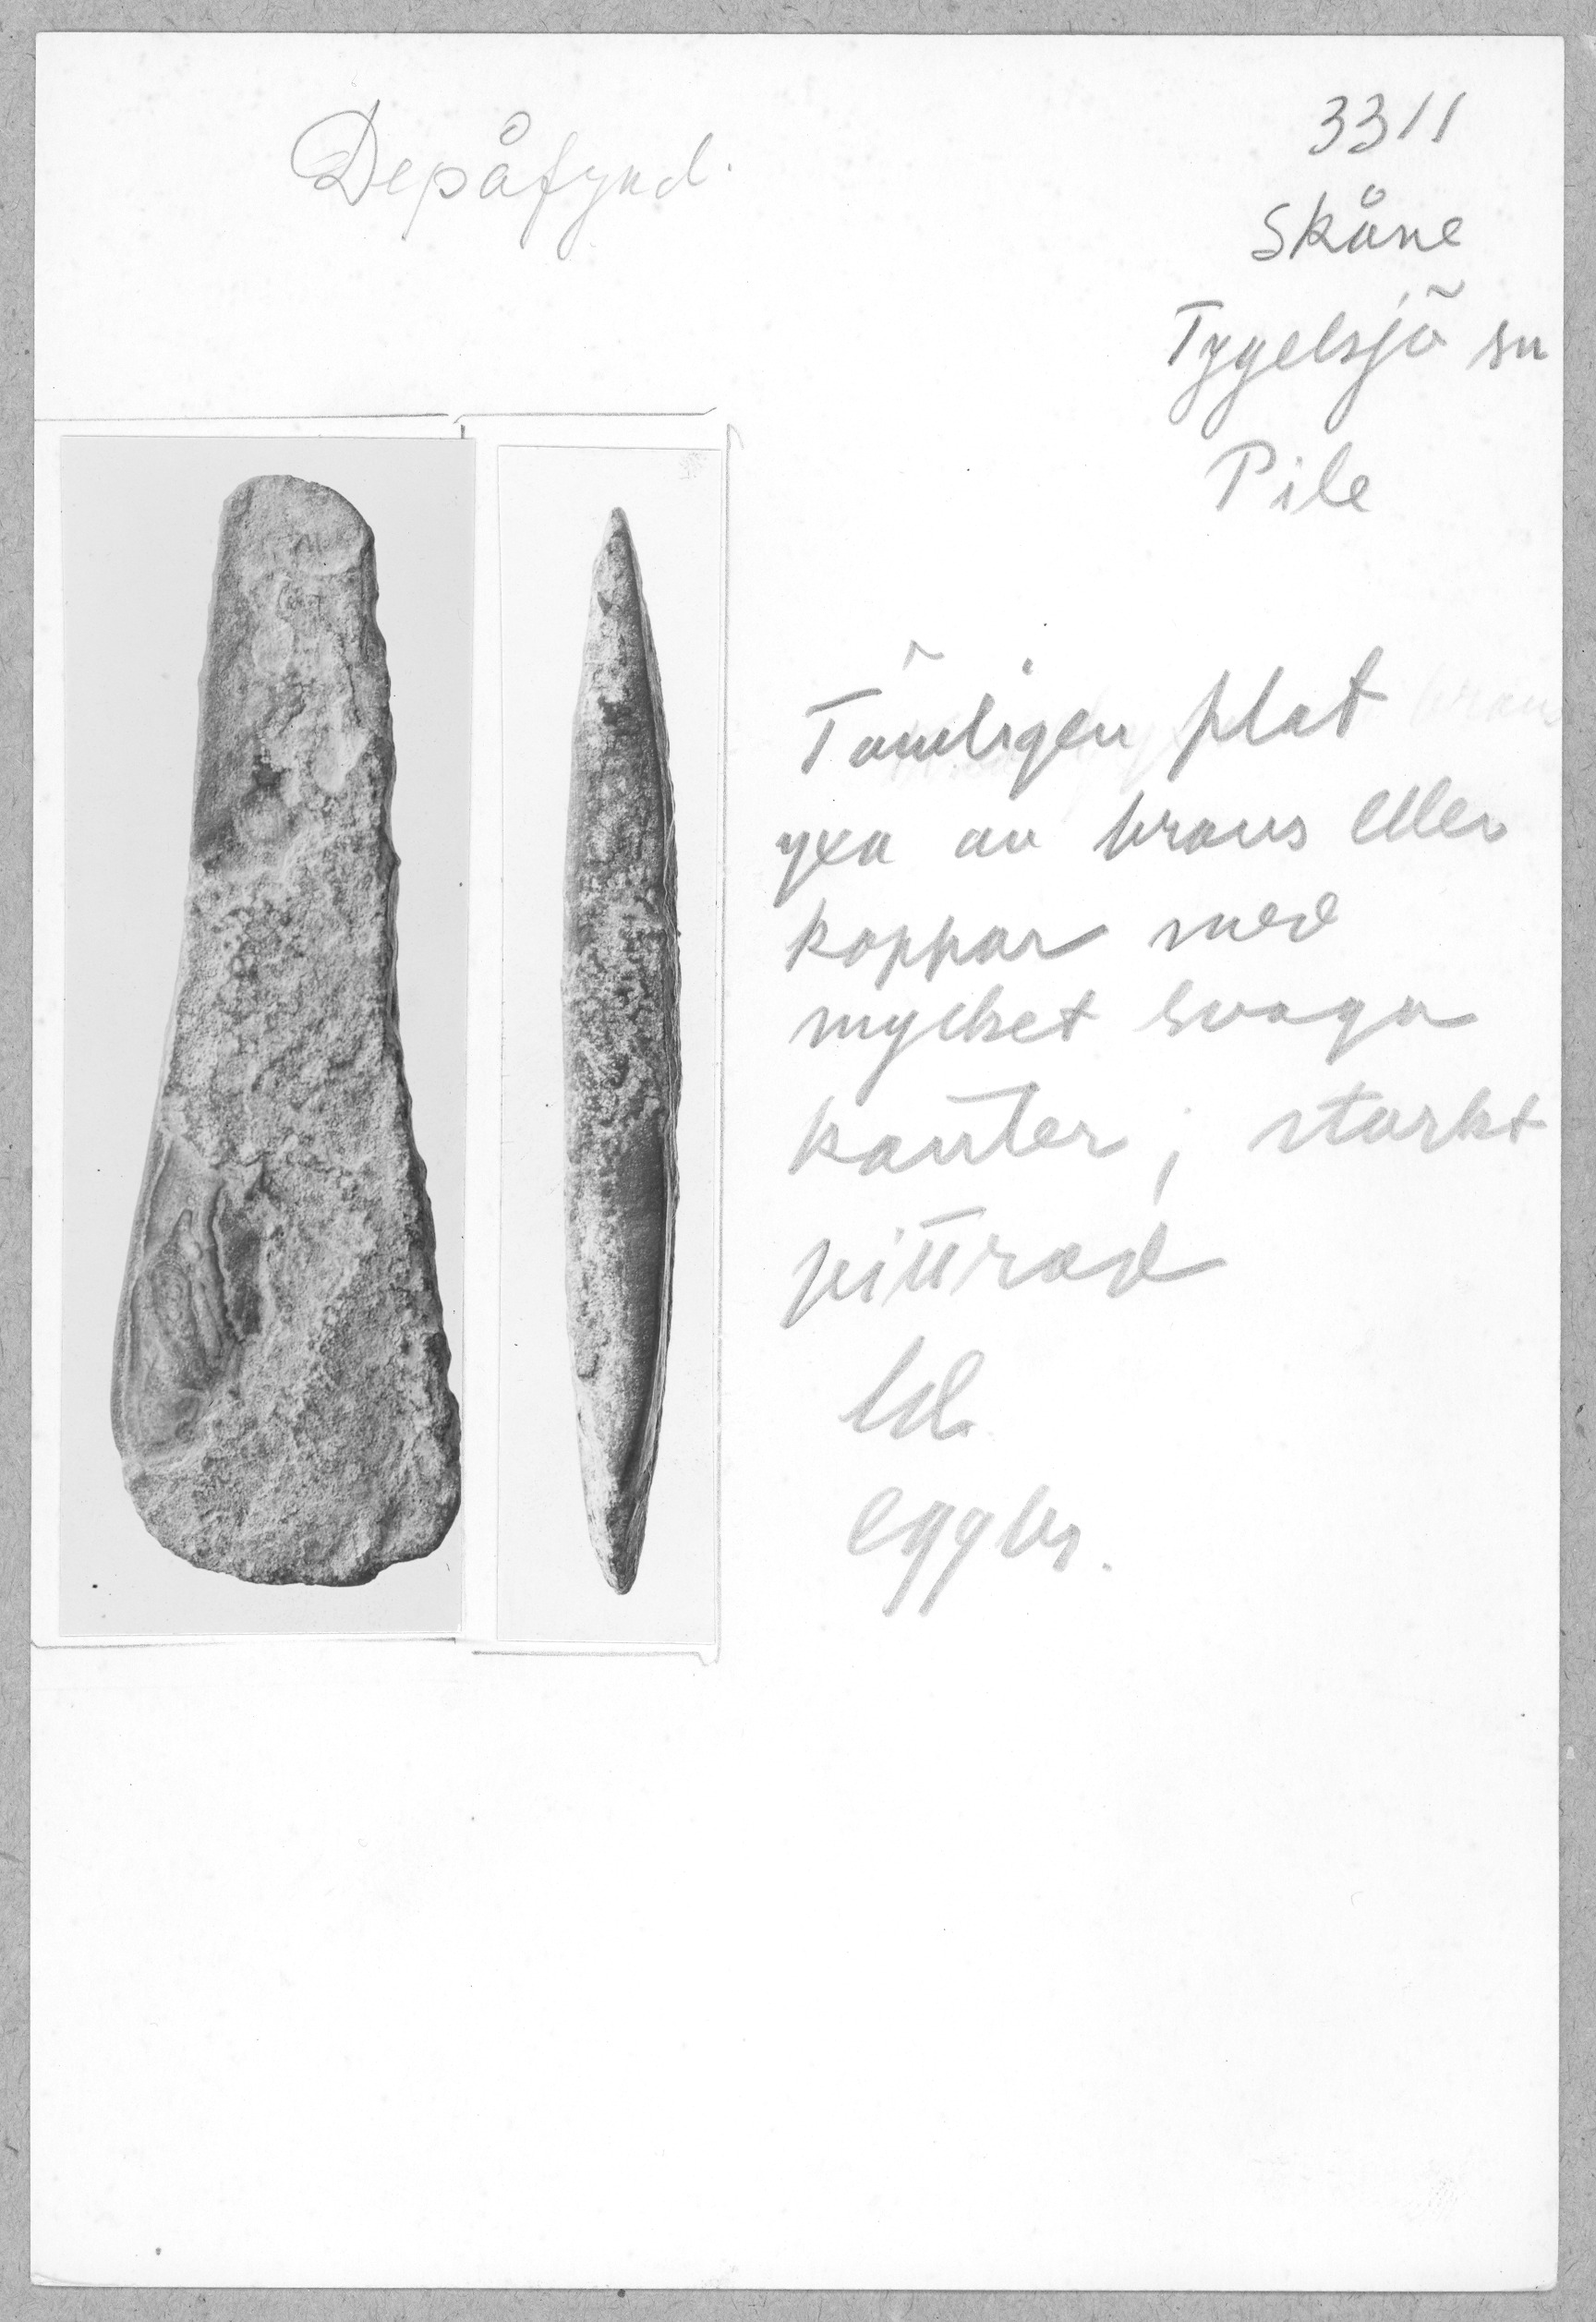 Depåfynd.
3311
Skåne
Tygelsjö sn
Pile
Tämligen plat
yxa av brons eller
koppar med
mycket svaga
kanter, starkt
pittrad
ld.
eggbr.